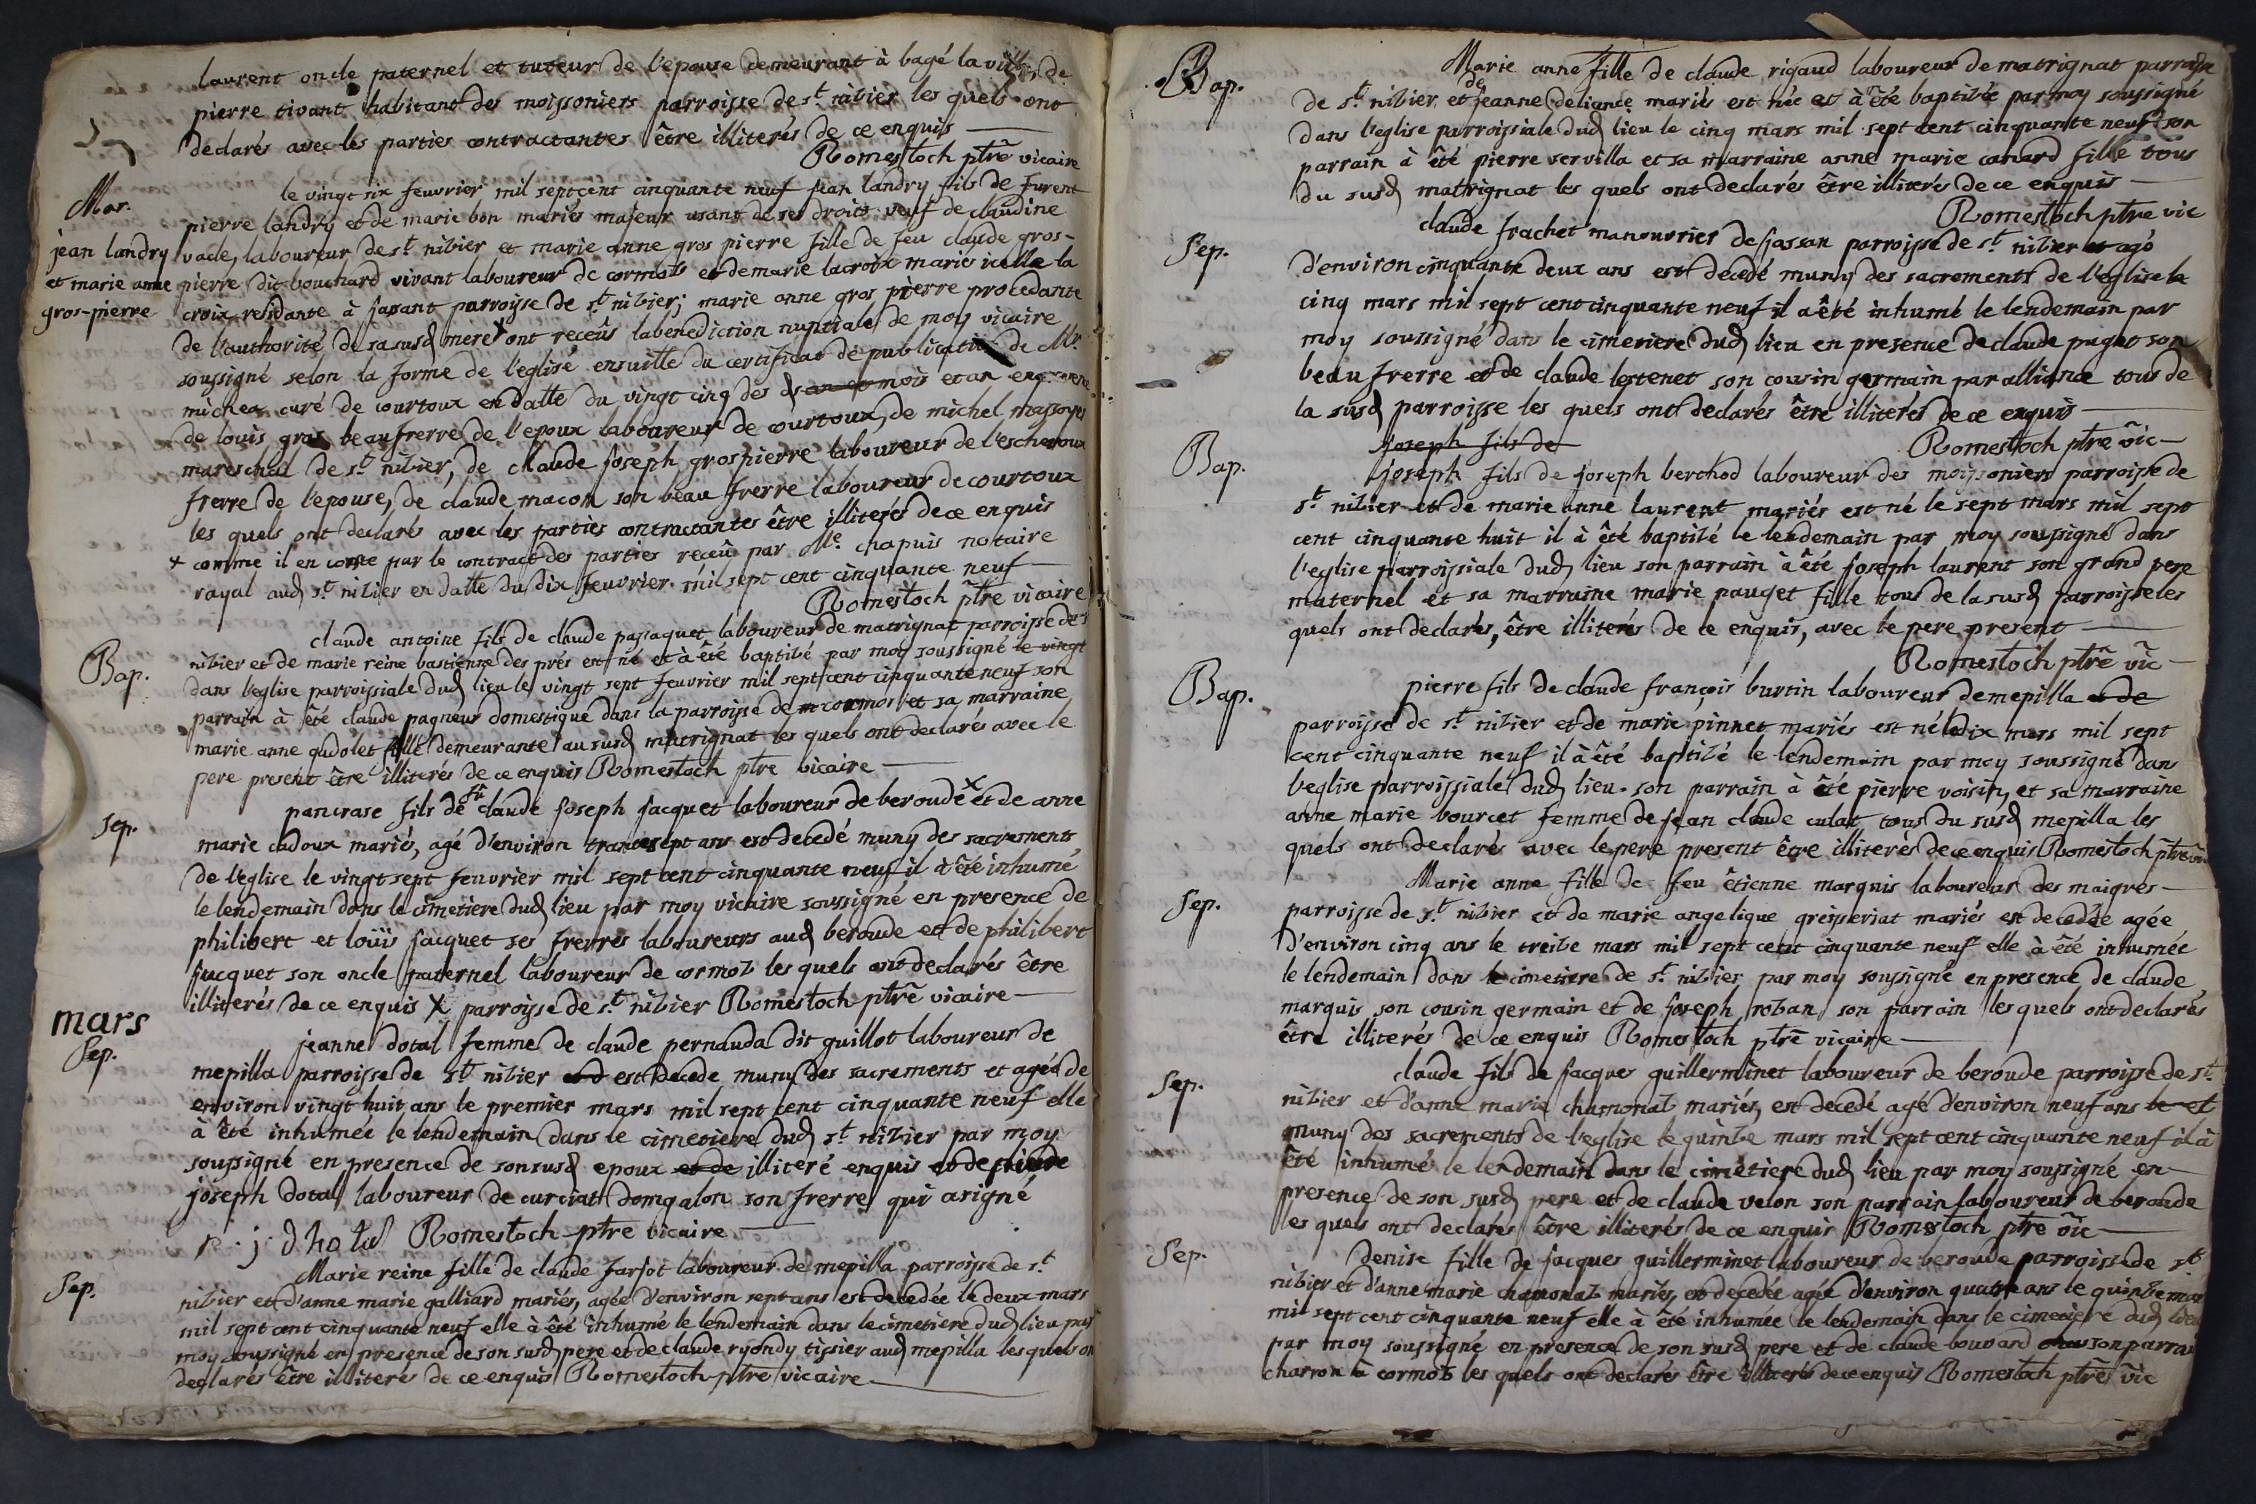 laurent oncle paternel et tuteur de l'epouse demeurant à bagé la ville de
pierre tivant habitant des moissoniers parroisse de st nizier les quels ont
declarés avec les parties contractantes être illiterés de ce enquis
Romestoch ptre vicaire
Mar.
jean landry
et marie anne
gros-pierre
le vingt six feuvrier mil sept cent cinquante neuf jean landry fils de furent
pierre landry et de marie bon mariés majeur usant de ses droits veuf de claudine
vade, laboureur de st nizier et marie anne gros pierre fille de feu claude gros-
pierre dit bouchard vivant laboureur de cormoz et de marie lacroix mariés icelle la
croix residante à fasant parroisse de st nizier; marie anne gros pierre procedante
de l'authorité de sa susd mere x ont receûs la benediction nuptiale de moy vicaire
soussigné selon la forme de l'eglise ensuitte du certificat de publication de Mr
michea curé de courtoux en datte du vingt cinq des d an et mois et an en presence
de louis gras beau frerre de l'epoux laboureur de courtoux, de michel massoyer
mareschal de st nizier, de claude joseph grospierre laboureur de l'escheroux
frerre de l'epouse, de claude macon son beau frerre laboureur de courtoux
les quels ont declarés avec les parties contractantes être illiterés de ce enquis
x comme il en conste par le contract des parties receû par Me chapuis notaire
royal aud st nizier en datte du dix feuvrier mil sept cent cinquante neuf
Romestoch ptre vicaire
Bap.
claude antoine fils de claude passaquet laboureur de matrignat parroisse de st
nizier et de marie reine bastienne des prés est né et à été baptizé par moy soussigné le vingt
dans l'eglise parroissiale dud lieu le vingt sept feuvrier mil sept cent cinquante neuf son
parrain à été claude pagneur domestique dans la parroisse de cormoz et sa marraine
marie anne gudolet fille demeurante au susd matrignat les quels ont declarés avec le
pere present être illiterés de ce enquis Romestoch ptre vicaire
Sep.
pancrase fils de fû claude joseph jacquet laboureur de beroude x et de anne
marie cadoux mariés, agé d'environ trante sept ans est decedé muny des sacrements
de l'eglise le vingt sept feuvrier mil sept cent cinquante neuf il à été inhumé
le lendemain dans le cimetiere dud lieu par moy vicaire soussigné en presence de
philibert et loüis jacquet ses frerres laboureurs aud beroude et de philibert
jacquet son oncle paternel laboureur de cormoz les quels ont declarés être
illiterés de ce enquis x parroisse de st nizier Romestoch ptre vicaire
mars
Sep.
jeanne dotal femme de claude pernauda dit guillot laboureur de
mepilla parroisse de st nizier est decede muny des sacrements et agée de
environ vingt huit ans le premier mars mil sept cent cinquante neuf elle
à été inhumée le lendemain dans le cimetiere dud st nizier par moy
soussigné en presence de son susd epoux et de illiteré enquis et de
joseph dotal laboureur de curciat dongalon son frerre qui a signé
j dhotal Romestoch ptre vicaire
Sep.
Marie reine fille de claude farjot laboureur de mepilla parroisse de st
nizier et d'anne marie galliard mariés, agée d'environ sept ans est decedée le deux mars
mil sept cent cinquante neuf elle à été inhumé le lendemain dans le cimetiere dud lieu par
moy soussigné en presence de son susd pere et de claude ryondy tissier aud mepilla les quels on
declarés être illiterés de ce enquis Romestoch ptre vicaire
Bap.
Marie anne fille de claude rigaud laboureur de matrignat parroisse
de st nizier et de jeanne deliance mariés est née et à été baptizée par moy soussigné
dans l'eglise parroissiale dud lieu le cinq mars mil sept cent cinquante neuf son
parrain à été pierre servilla et sa marraine anne marie canard fille tous
du susd matrignat les quels ont declarés être illiterés de ce enquis
Romestoch ptre vic
Sep.
claude frachet manouvrier de fassan parroisse de st nizier et agé
d'environ cinquante deux ans est decedé muny des sacrements de l'eglise le
cinq mars mil sept cent cinquante neuf il a été inhumé le lendemain par
moy soussigné dans le cimetiere dud lieu en presence de claude puget son
beau frerre et de claude lestenet son cousin germain par alliance tous de
la susd parroisse les quels ont declarés être illiterés de ce enquis
joseph fils de
Romestoch ptre vic
Bap.
joseph fils de joseph berchod laboureur des moissoniers parroisse de
st nizier et de marie anne laurent mariés est né le sept mars mil sept
cent cinquante huit il à été baptizé le lendemain par moy soussigné dans
l'eglise parroissiale dud lieu son parrain à été joseph laurent son grand pere
maternel et sa marraine marie pauget fille tous de la susd parroisse les
quels ont declarés, être illiterés de ce enquis, avec le pere present
Romestoch ptre vic
Bap.
pierre fils de claude françois burtin laboureur de mepilla et de
parroisse de st nizier et de marie pinnet mariés est né le dix mars mil sept
cent cinquante neuf il à été baptizé le lendemain par moy soussigné dans
l'eglise parroissiale dud lieu. son parrain à été pierre voisin, et sa marraine
anne marie bourcet femme de jean claude culat tous du susd mepilla les
quels ont declarés avec le pere present être illiterés de ce enquis Romestoch ptre vic
Sep.
Marie anne fille de feu étienne marquis laboureur des maigres
parroisse de st nizier et de marie angelique greisseriat mariés est decedée agée
d'environ cinq ans le treize mars mil sept cent cinquante neuf elle à été inhumée
le lendemain dans le cimetiere de st nizier par moy soussigné en presence de claude
marquis son cousin germain et de joseph roban son parrain les quels ont declarés
être illiterés de ce enquis Romestoch ptre vicaire
Sep.
claude fils de jacques guillerminet laboureur de beroude parroisse de st
nizier et d'anne marie chamonaz mariés, est decedé agé d'environ neuf ans le et
muny des sacrements de l'eglise le quinze mars mil sept cent cinquante neuf il à
été inhumé le lendemain dans le cimetiere dud lieu par moy soussigné en
presence de son susd pere et de claude velon son parrain laboureur de beroude
les quels ont declarés être illiterés de ce enquis Romestoch ptre vic
Sep.
denise fille de jacques guillerminet laboureur de beroude parroisse de st
nizier et d'anne marie chamonaz mariés, est decedée agée d'environ quatre ans le quinze mar
mil sept cent cinquante neuf elle à été inhumée le lendemain dans le cimetiere dud lieu
par moy soussigné en presence de son susd pere et de claude bouvard son parrai
charron à cormoz les quels ont declarés être illiterés de ce enquis Romestoch ptre vic